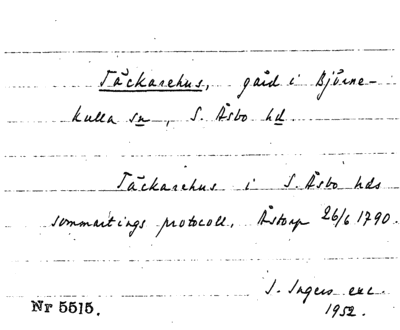 Täckarehus, gård i Björne-
kulla sn, S. Åsbo hd.
Täckarehus i S. Åsbo hds
sommartings protocoll, Åstorp 26/6 1790.
I. Ingers exc.
Nr 5515. 1952.